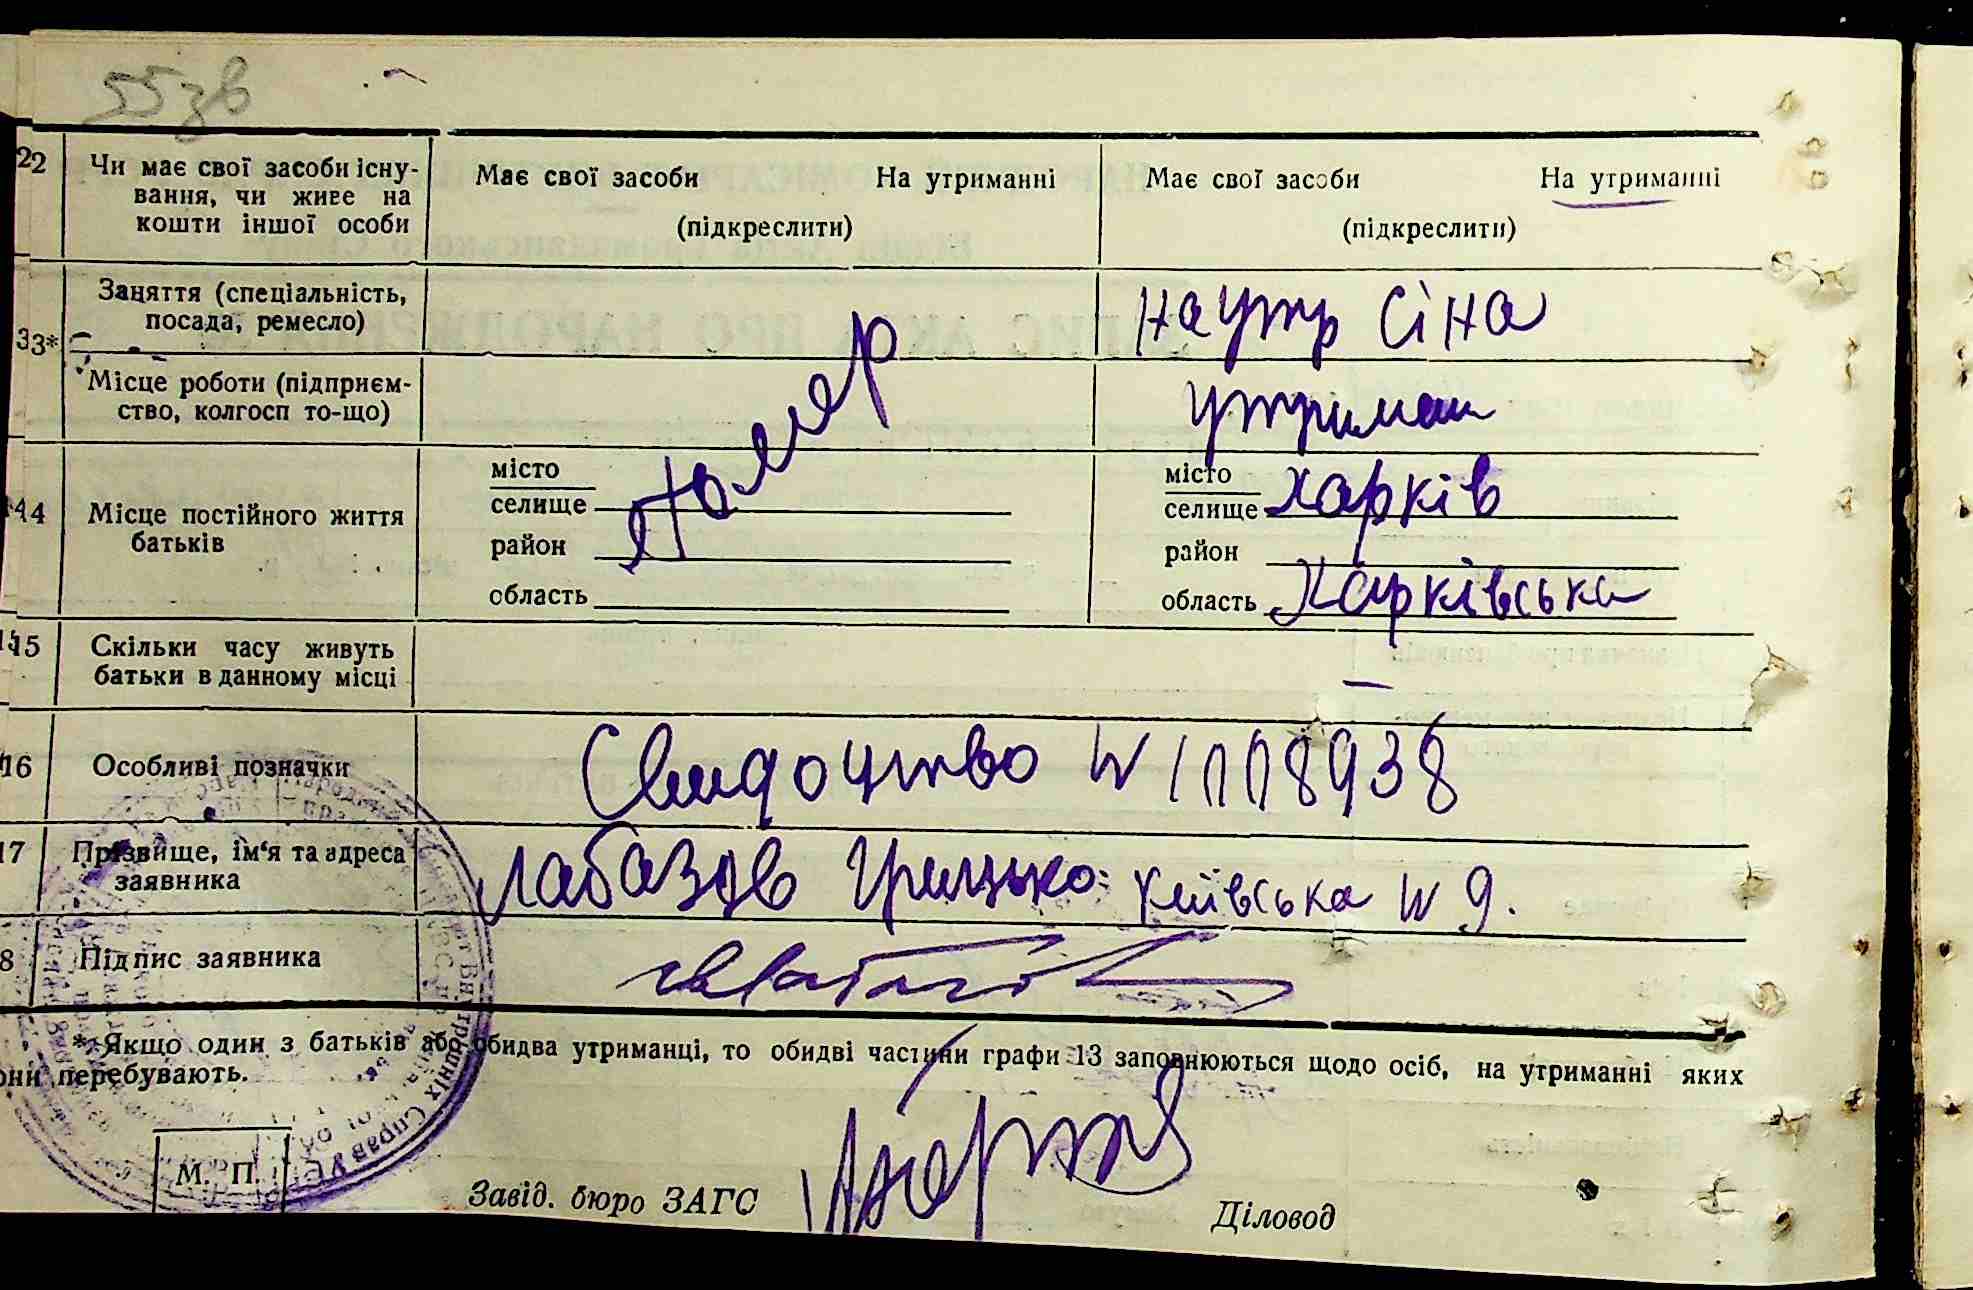 55зв
22 Чи має свої засоби існу-
вання, чи живе на
кошти іншої особи
Має свої засоби На утриманні
(підкреслити)
Має свої засоби На утриманні
(підкреслити)
33* Заняття (спеціальність,
посада, ремесло)
на утр Сіна
Місце роботи (підприєм-
ство, колгосп то-що)
утриман
Помер
44 Місце постійного життя
батьків
місто
селище
район
область
місто
селище Харків
район
область Харківська
15 Скільки часу живуть
батьки в данному місці
—
16 Особливі позначки
Свидоцтво N 1008938
17 Прізвище, ім'я та адреса
заявника
Лабазов Грицько: Київська N 9.
8 Підпис заявника
* Якщо один з батьків або обидва утриманці, то обидві частини графи 13 заповнюються щодо осіб, на утриманні яких
они перебувають.
М. П.
Завід. бюро ЗАГС
Діловод